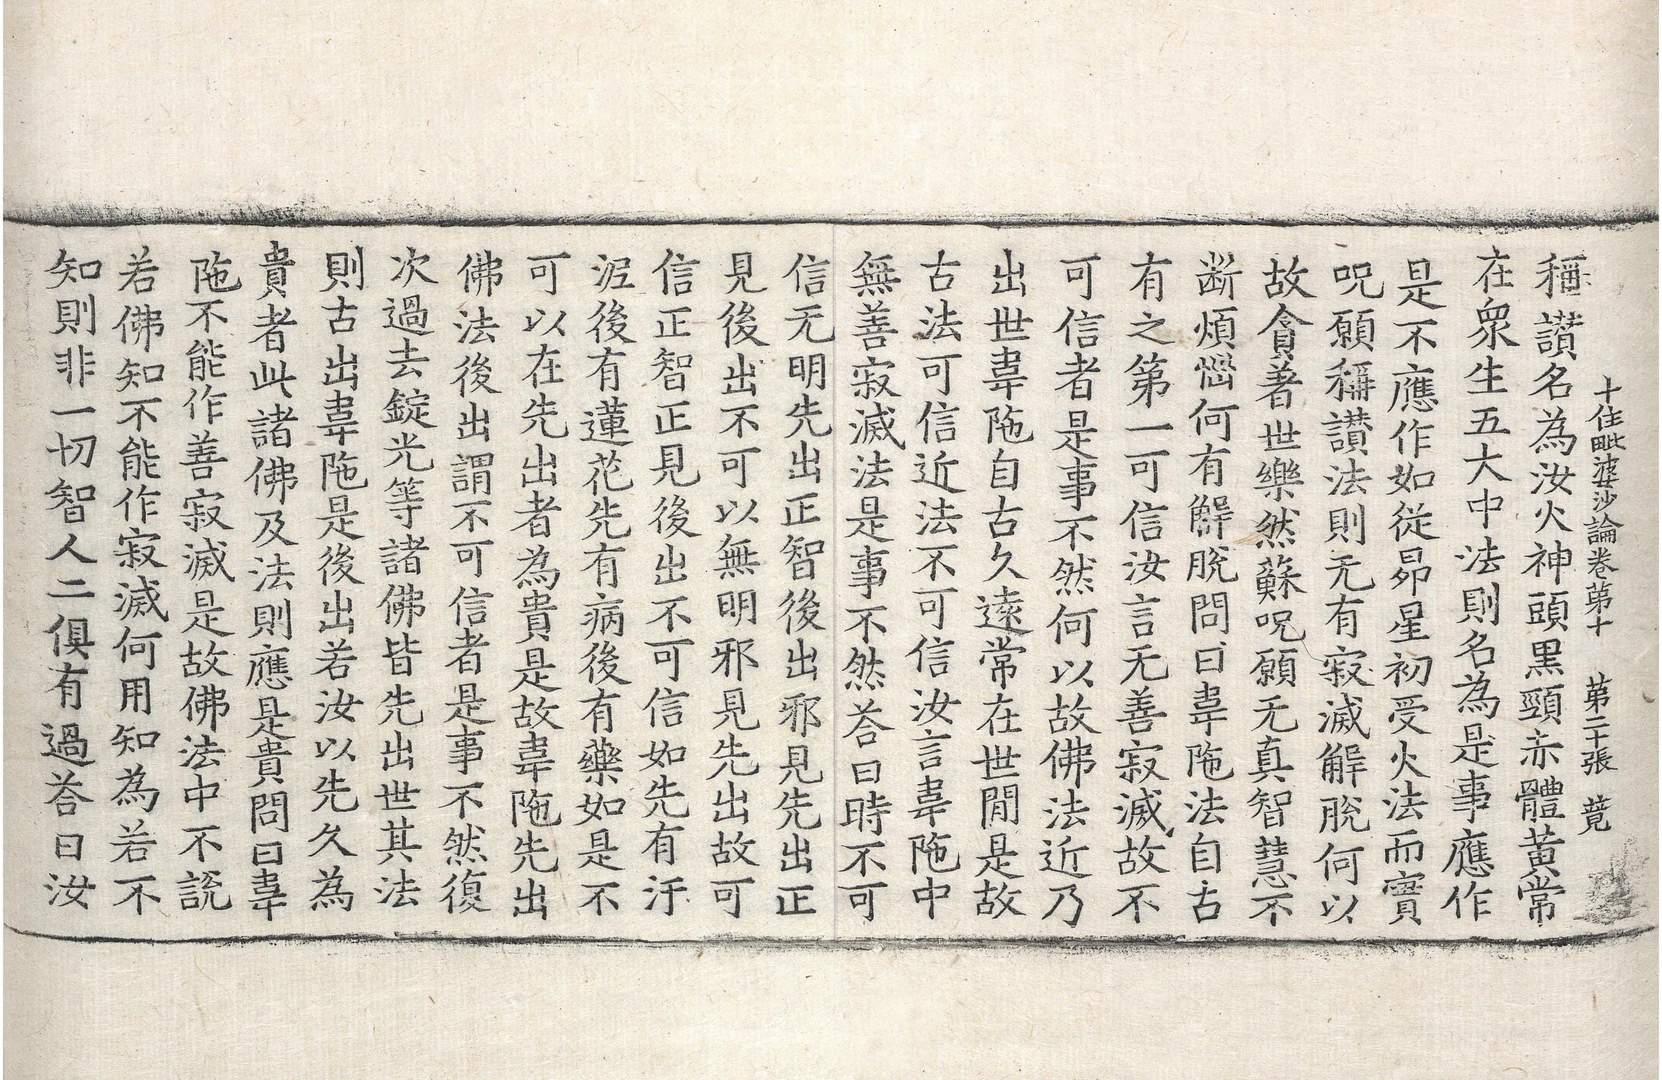 十住毗婆沙論卷苐十 苐二十張 萛
稱讃名為汝火神頭黒頸赤體黃常
在衆生五大中法則名為是事應作
是不應作如従昴星初受火法而實
呪願稱讃法則无有寂滅解脫何以
故貪著世樂然蘇呪願无真智慧不
断煩惱何有解脫問曰韋陁法自古
有之苐一可信汝言无善寂滅故不
可信者是事不然何以故佛法近乃
出世韋陁自古久遠常在世閒是故
古法可信近法不可信汝言韋陁中
無善寂滅法是事不然荅曰時不可
信无明先出正智後出邪見先出正
見後出不可以無明邪見先出故可
信正智正見後出不可信如先有汙
泥後有蓮花先有病後有藥如是不
可以在先出者為貴是故韋陁先出
佛法後出謂不可信者是事不然復
次過去錠光等諸佛皆先出世其法
則古出韋陁是後出若汝以先久為
貴者此諸佛及法則應是貴問曰韋
陁不能作善寂滅是故佛法中不說
若佛知不能作寂滅何用知為若不
知則非一切智人二俱有過荅曰汝